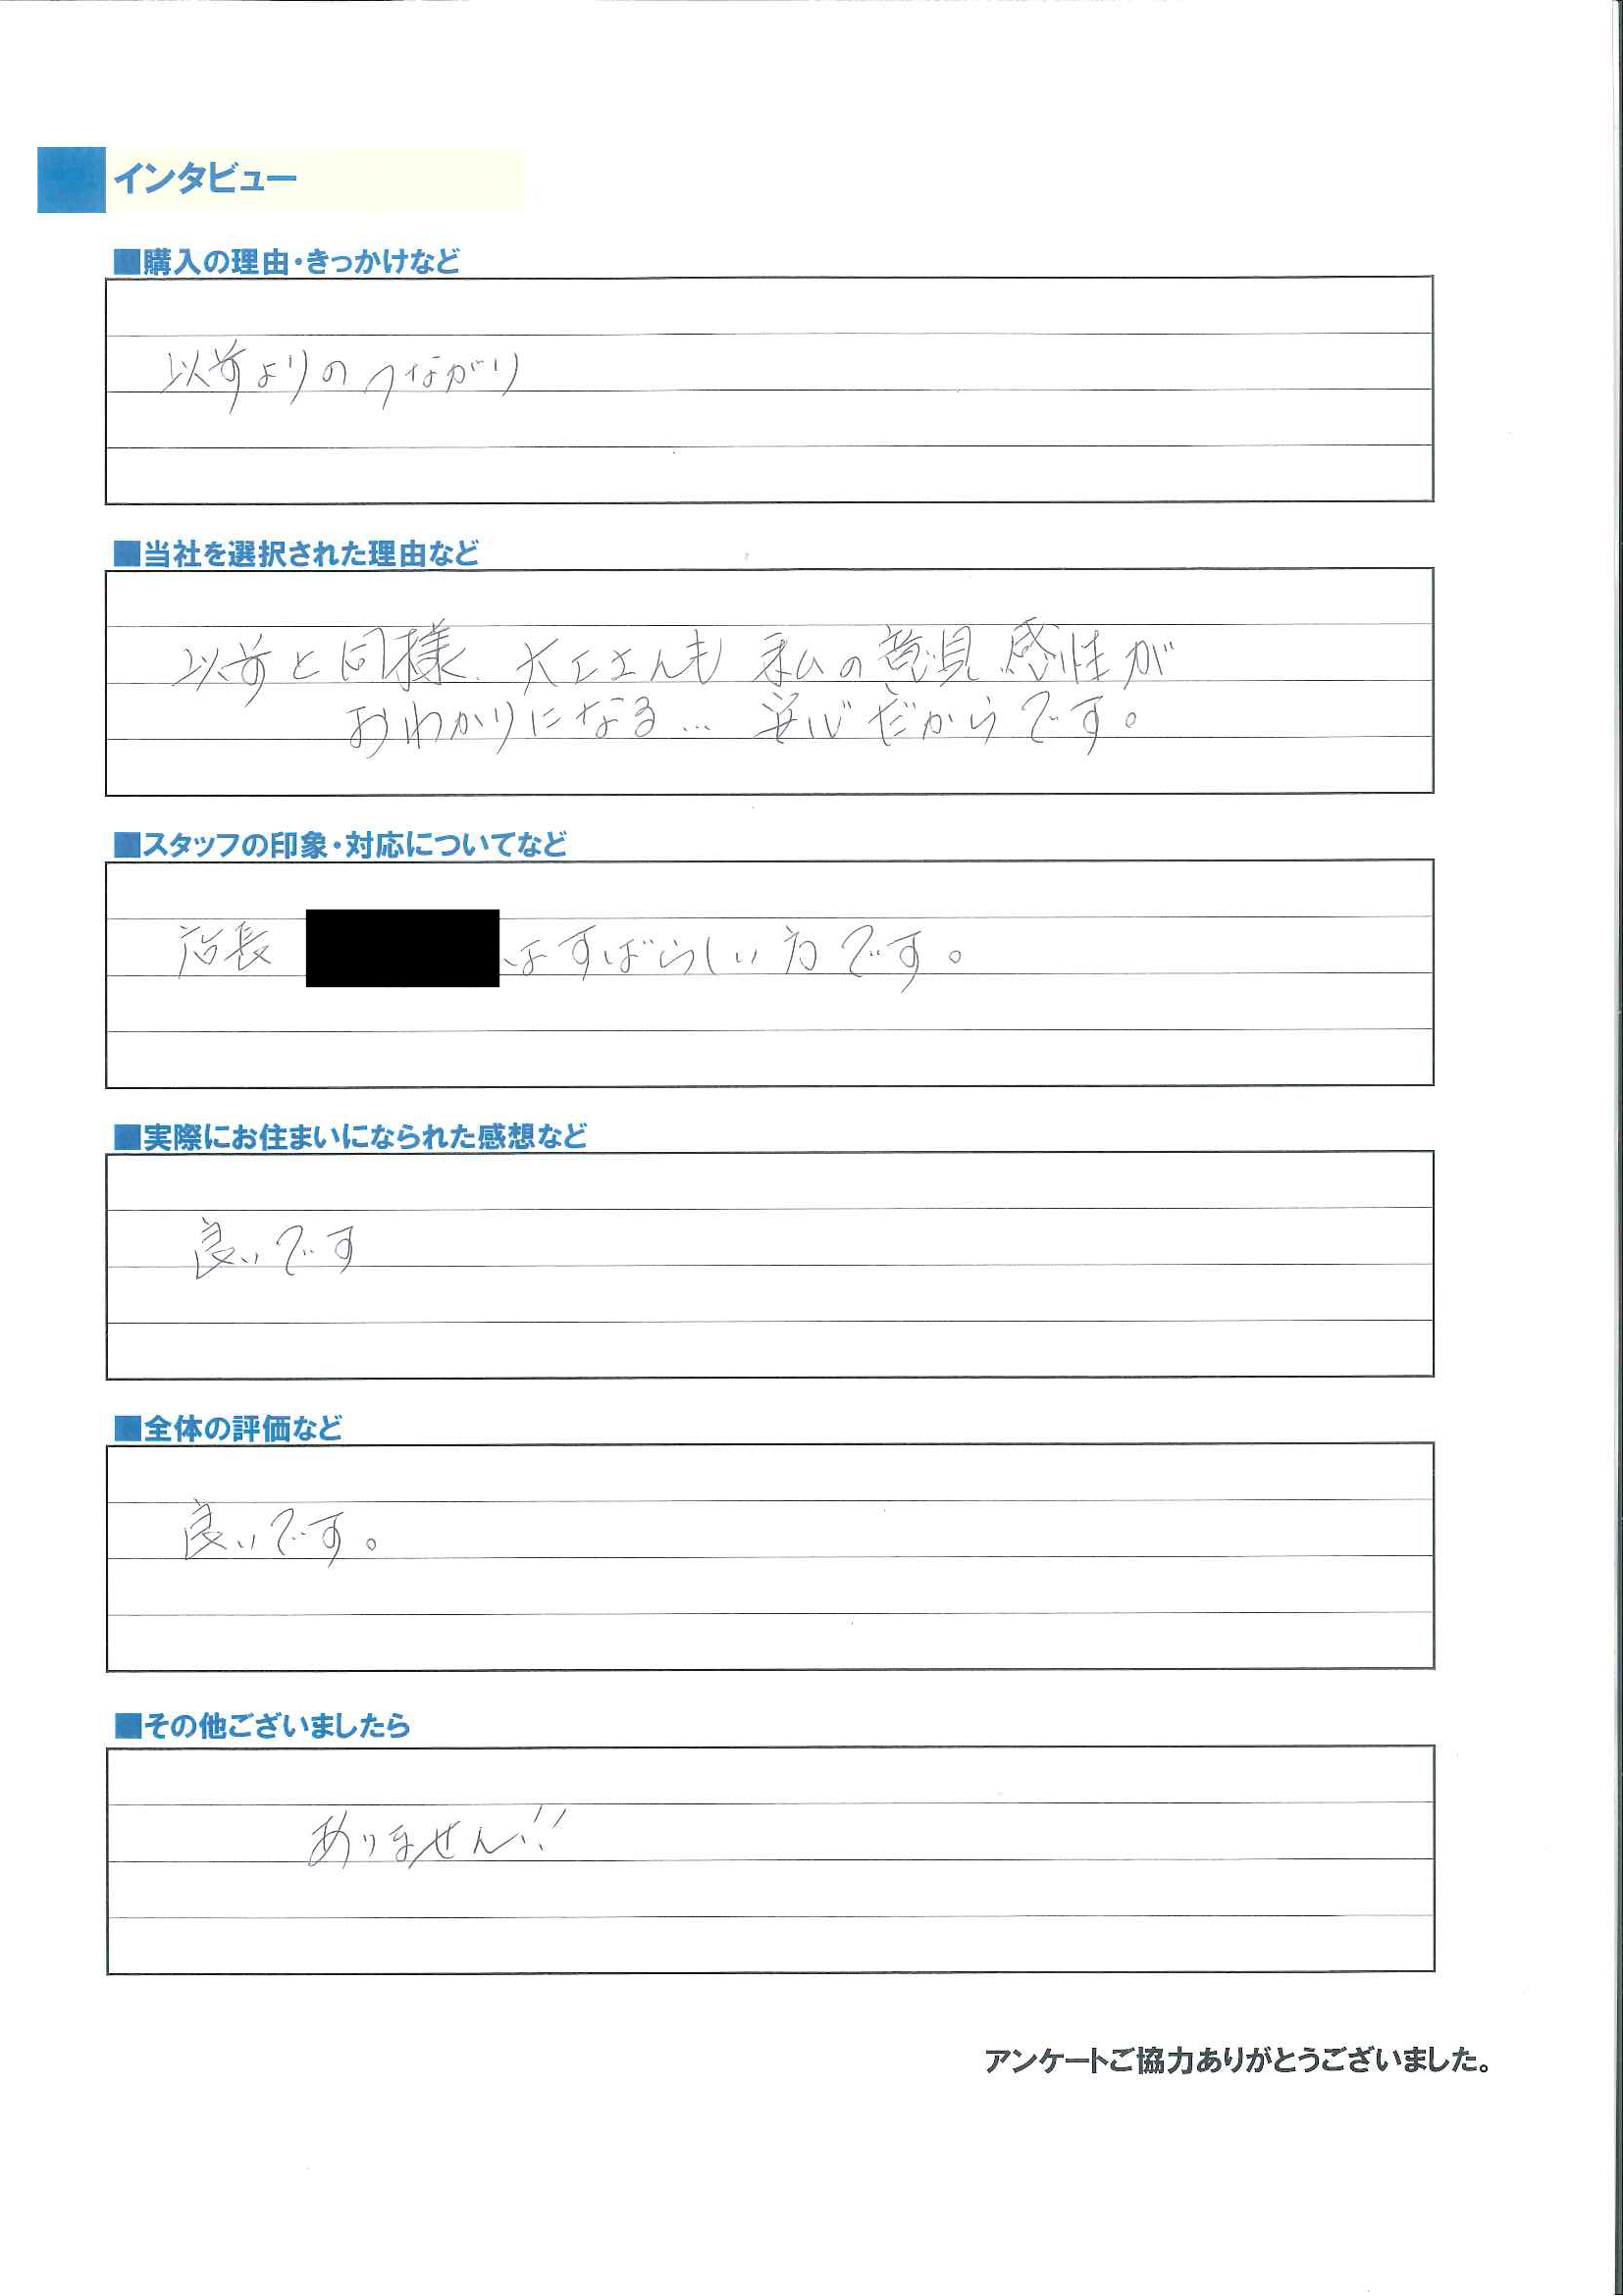 インタビュー
■購入の理由・きっかけなど
以前よりのつながり
■当社を選択された理由など
以前と同様、大工さんも 私の意見 感性が
おわかりになる… 安心だからです。
■スタッフの印象・対応についてなど
店長 はすばらしい方です。
■実際にお住まいになられた感想など
良いです
■全体の評価など
良いです。
■その他ございましたら
ありません!!
アンケートご協力ありがとうございました。